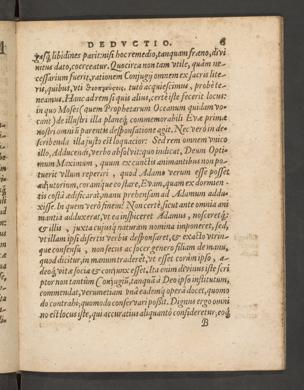 DEDVCTIO. 6
libidines parit: nisi hoc remedio, tanquam fræno, divi
nitus dato, coerceatur. Quocirca non tam vtile, quàm ne-
cessarium fuerit, rationem Conjugij omnem ex sacris lite-
ris, quibus, vti tutò acquiescimus, probè te-
neamus. Hanc ad rem si quis alius, certè iste fecerit locus:
in quo Moses ( quem Prophetarum Oceanum quidam vo-
cant ) de illustri illa planeq́ commemorabili Evæ primæ
nostri omniũ parentis desponsatione agit. Nec verò in de-
scribendâ illa justo est loquacior: Sed rem omnem vnico
illo, Adduxit, verbo absolvit: quo indicat, Deum Opti-
mum Maximum, quum ex cunctis animantibus non po-
tuerit vllum reperiri, quod Adamo verum esse posset
adjutorium, coràm quo staret, Evam, quam ex dormien-
tis costâ ædificârat, manu prehensam ad Adamum addu-
xisse. In quem verò finem? Non certè sicut ante omnia ani
mantia adduxerat, vt ea inspiceret Adamus, nosceretq́;
& illis, juxta cujusq́; naturam nomina imponeret, sed,
vt illam ipsi disertis verbis desponsaret, & exacto vtrin-
que consensu, non secus ac socer genero filiam de manu,
quod dicitur, in manum traderet, vt esset coràm ipso, a-
deoq́; vitæ socia & conjunx esset. Ita enim divinus iste scri
ptor non tantùm Conjugiũ, tanquã à Deo ipso institutum,
commendat, verumetiam vnâ eademq́; operâ docet, quomo
do contrahi, quomodo conservari possit. Dignus ergo omni
no est locus iste, qui accuratius aliquantò consideretur, eoq́;
B